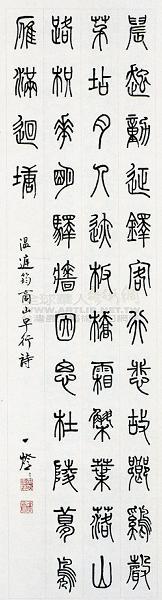 晨起動征鐸客行悲故鄉雞聲
茅坫月人迹板橋霜槲葉落山
路枳華明驛牆因思杜陵夢鳧
雁滿迴塘
温庭筠商山早行詩
一燈